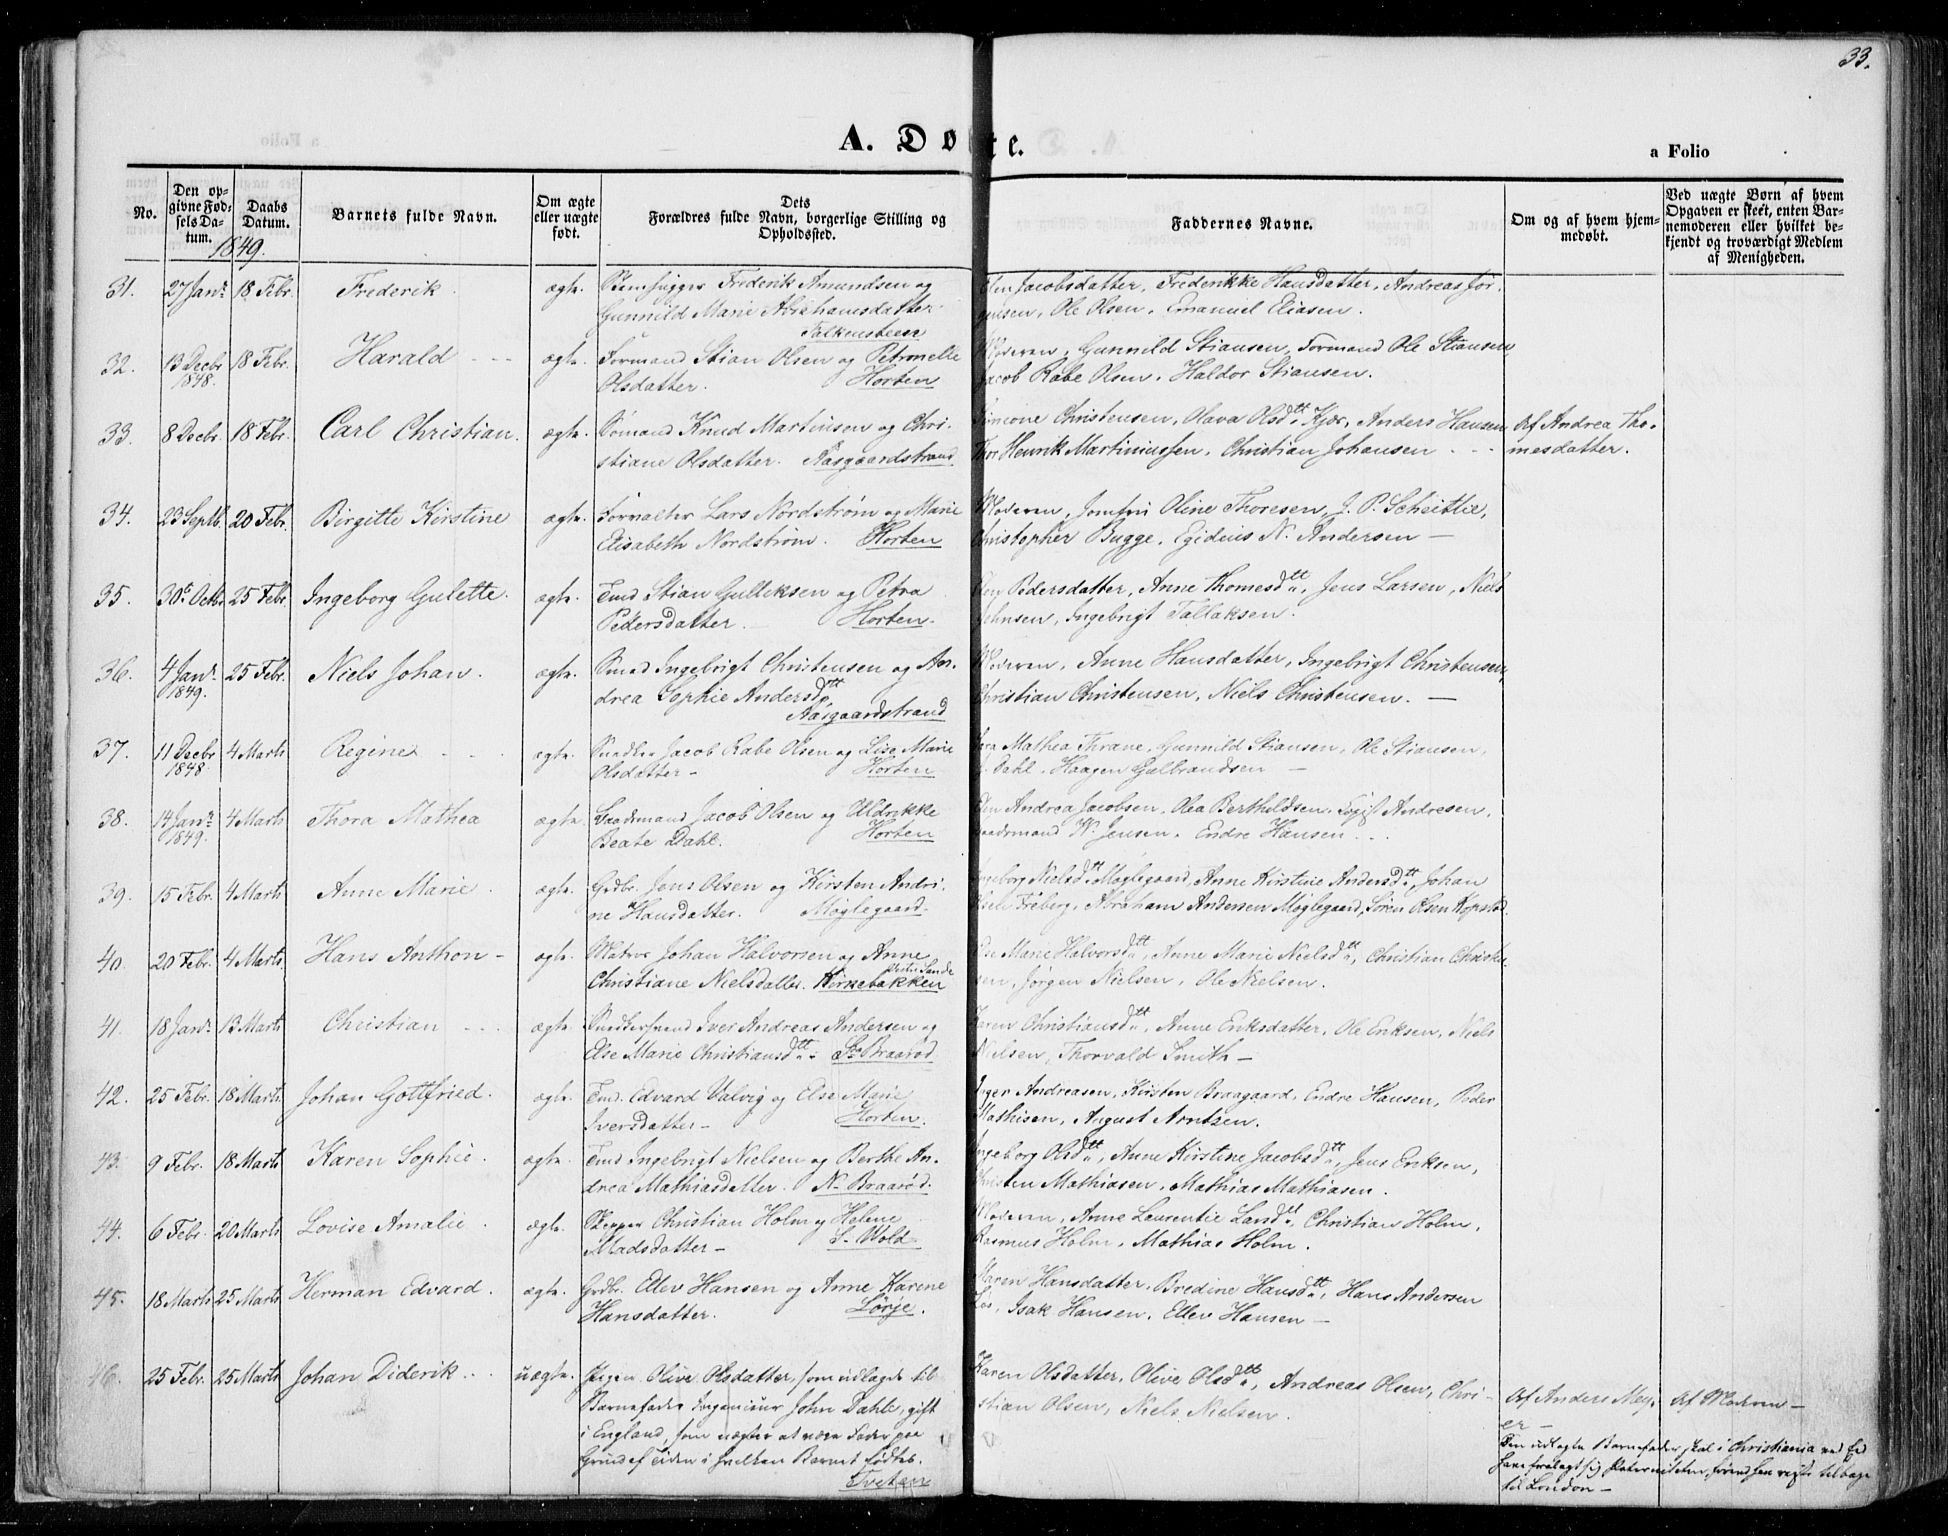 33.
A. Døbte.
a Folio
No.
Den op-
givne Fød-
sels Da-
tum.
Daabs
Datum.
1849.
Barnets fulde Navn.
Om ægte
eller uægte
født.
Dets
Forældres fulde Navn, borgerlige Stilling og
Opholdssted.
Faddernes Navne.
Om og af hvem hjem-
medøbt.
Ved uægte Børn af hvem
Opgaven er skeet, enten Bar-
nemoderen eller hvilket be-
kjendt og troværdigt Medlem
af Menigheden.
31. 27 Janr. 18 Febr. Frederik. ægte. Steenhugger Frederik Amundsen og Jacobsdatter, Frederikke Hansdatter, Andreas Jør-
Gunnild Marie Abrahamsdatter gensen, Ole Olsen, Emanuel Eliasen.
Falkensteen
32. 13 Decbr 18 Febr. Harald ægte. Formand Stian Olsen og Petronelle Moderen, Gunnild Stiansen, Formand Ole Stiansen
1848. Olsdatter. Horten Jacob Rabe Olsen, Haldor Stiansen.
33. 8 Decbr. 18 Febr. Carl Christian. ægte. Sømand Knud Martinsen og Chri- Simone Christensen, Olava Olsdtt. Kjær, Anders Hansen Af Andrea Tho-
stiane Olsdatter. Aasgaardstrand Thor Henrik Martiniussen, Christian Johansen mesdatter.
34. 23 Septb. 20 Febr. Birgitte Kirstine ægte. Forvalter Lars Nordstrøm og Marie Moderen, Jomfru Oline Thoresen, J. P. Scheitlie,
Elisabeth Nordstrøm. Horten Christopher Bugge, Egidius N. Andersen —
35. 30te Octbr 25 Febr Ingeborg Gulette. ægte. Tmd Stian Gulliksen og Petra Pedersdatter, Anne Thomesdtt., Jens Larsen, Niels
Pedersdatter. Horten. Johnsen, Ingebrigt Tallaksen.
36. 4 Janr. 25 Febr. Niels Johan. ægte. Smed Ingebrigt Christensen og An- Moderen, Anne Hansdatter, Ingebrigt Christensen
1849. drea Sophie Andersdtt. Christian Christensen, Niels Christensen. —
Aasgaardstrand
37. 11 Decbr 4 Marts Regine ægte. Snedker Jacob Rabe Olsen og Lise Marie Mathea Thrane, Gunnild Stiansen, Ole Stiansen,
1848 Olsdatter – Horten Dahl, Haagen Gulbrandsen —
38. 14 Janr. 4 Marts Thora Mathea ægte. Baadsmand Jacob Olsen og Uldrikke Andrea Jacobsen, Olea Bertheldsen, Andresen,
1849. Beate Dahl. Horten Baadsmand W. Jensen, Endre Hansen
39. 15 Febr. 4 Marts Anne Marie. ægte. Grdbr. Jens Olsen og Kirsten Andri- Ingeborg Nielsdtt. Møglegaard, Anne Kirstine Andersdtt., Johan
ne Hansdatter. Møglegaard. Olsen Freberg, Abraham Andersen Møglegaard, Søren Olsen Kopstad.
40. 20 Febr. 4 Marts. Hans Anthon – ægte. Matros Johan Halvorsen og Anne Else Marie Halvorsdtt., Anne Marie Nielsdtt., Christian Christen-
Christiane Nielsdatter. Kirkebakken Vestre Sande sen, Jørgen Nielsen, Ole Nielsen.
41. 18 Janr. 13 Marts Christian ægte. Snedkersvend Iver Andreas Andersen og Karen Christiansdtt., Anne Eriksdatter, Ole Eriksen, Niels
Else Marie Christiansdtt. – Sr Braarød Nielsen, Thorvald Smith –
42. 25 Febr. 18 Marts Johan Gottfried. ægte. Tmd. Edvard Valvig og Else Marie Inger Andreasen, Kirsten Braagaard, Endre Hansen, Peder
Iversdatter – Horten. Mathisen, August Arntzen.
43. 9 Febr. 18 Marts Karen Sophie. ægte. Tmd Ingebrigt Nielsen og Berthe An- Ingeborg Olsdtt., Anne Kirstine Jacobsdtt., Jens Eriksen,
drea Mathiasdatter. N. Braarød. Christen Mathiasen, Mathias Mathiasen.
44. 6 Febr. 20 Marts Lovise Amalie. ægte. Skipper Christian Holm og Helene Moderen, Anne Laurentie Landtt., Christian Holm,
Madsdatter – S. Wold Rasmus Holm, Mathias Holm.
45. 18 Marts 25 Marts Herman Edvard. ægte. Grdbr. Ellev Hansen og Anne Karene Maren Hansdatter, Bredine Hansdtt., Hans Andersen
Hansdatter. Lørje. Isak Hansen, Ellev Hansen –
46. 25 Febr. 25 Marts Johan Diderik uægte. Pigen Olive Olsdatter, som udlagde til Karen Olsdatter, Olive Olsdtt., Andreas Olsen, Chri- Af Anders Mey- Af Moderen –
Barnefader Ingenieur John Dahle, gift stian Olsen, Niels Nielsen. er –
i England, som nægter at være Fader paa Den udlagte Barnefader skal i Christiania ved Ed
Grund af Tiden i hvilken Barnet fødtes. have fralagt sig Paterniteten, førend han reiste tilbage
Tveten til London –